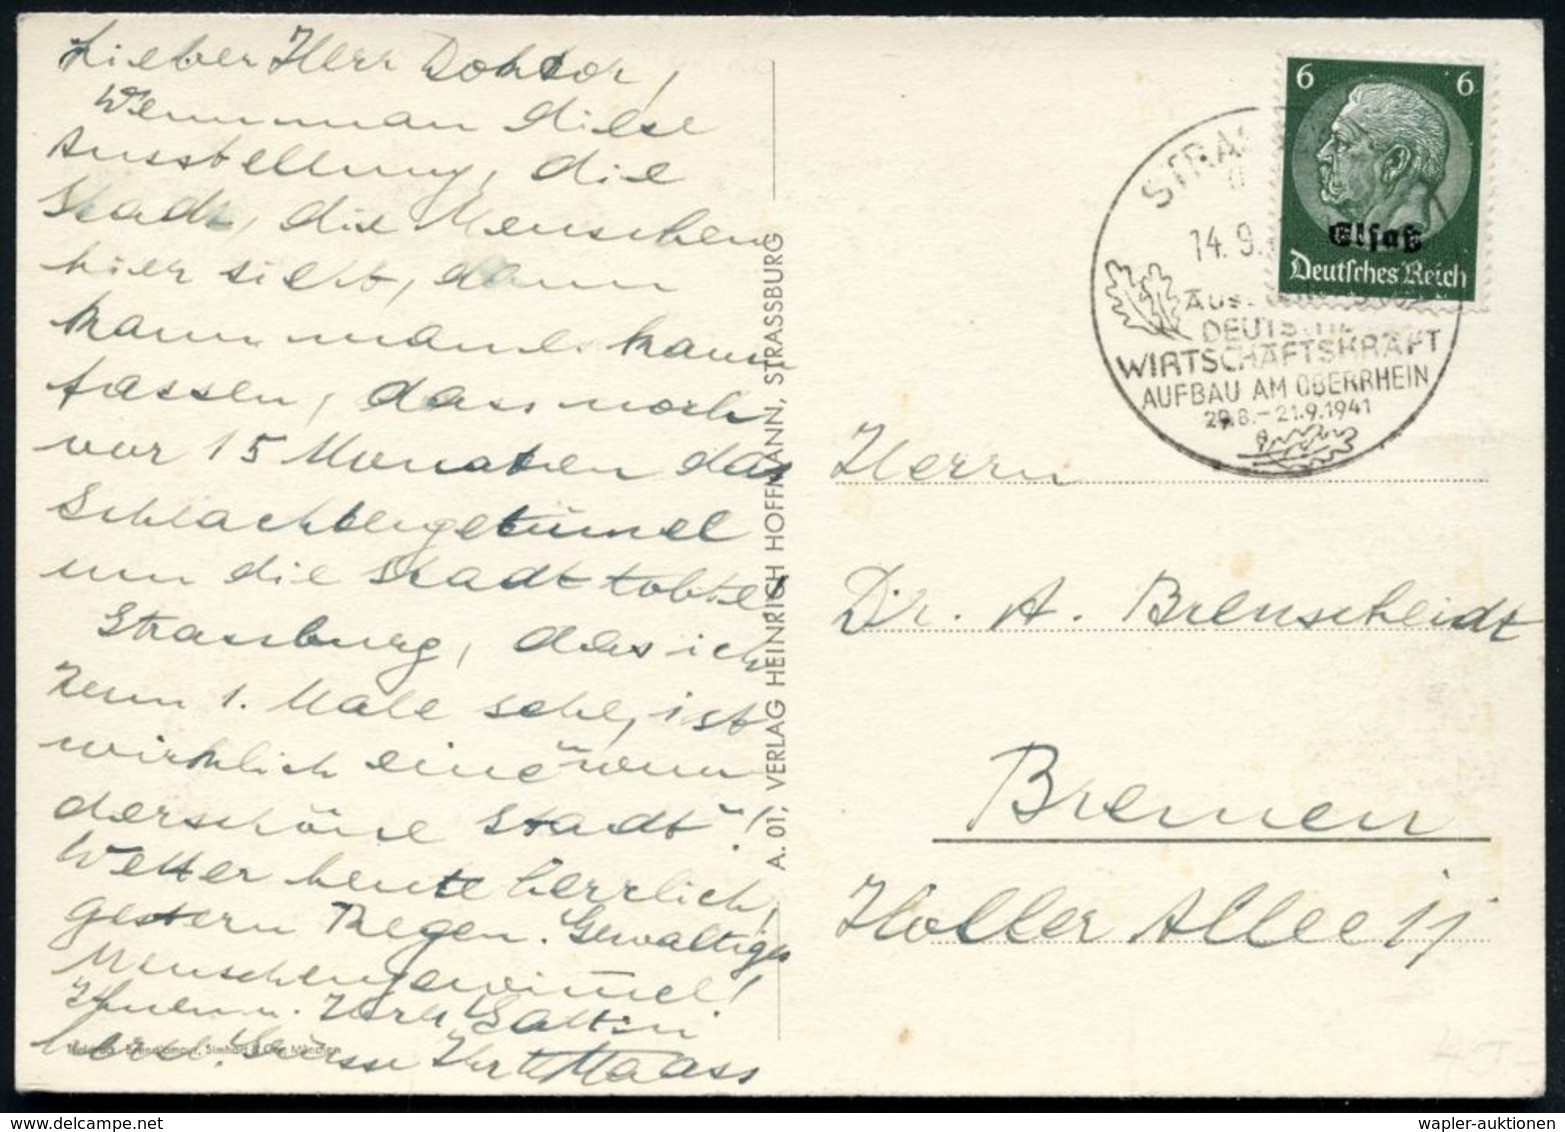 Lieber Herr Doktor,
Wenn man diese
Ausstellung, die
Stadt, die Menschen
hier sieht, dann
kann man es kaum
fassen, dass noch
vor 15 Monaten das
Schlachtengetümel
um die Stadt tobte!
Strassburg, das ich
zum 1. Male sehe, ist
wirklich eine "wun
derschöne Stadt"!
Wetter heute herrlich,
gestern Regen. Gewaltiges
Menschengewimmel!
Ihnen u. Ihrer Gattin
herzl. Grüsse Ihr Maass
A. 01, VERLAG HEINRICH HOFFMANN, STRASSBURG
6 6
Elsaß
Deutsches Reich
STRAS
14. 9.
DEUTSCHE
WIRTSCHAFTSKRAFT
AUFBAU AM OBERRHEIN
29.8.-21.9.1941
Herrn
Dr. A. Brenscheidt
Bremen
Holler Allee 11
München
wapler-auktionen